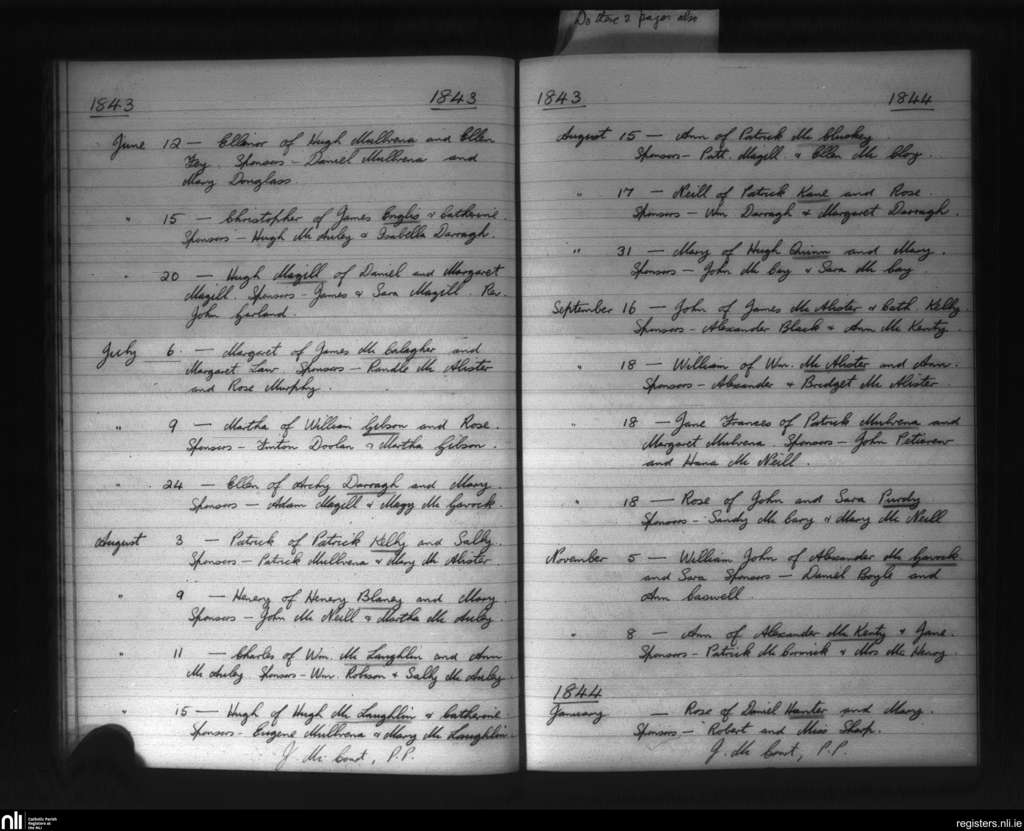 Do these 2 pages also
1843
1843
June 12 — Ellenor of Hugh Mullvena and Ellen
Fey. Sponsors — Daniel Mullvena and
Mary Douglass.
" 15 — Christopher of James Englis & Catherine.
Sponsors — Hugh Mc Auley & Isabella Darragh.
" 20 — Hugh Magill of Daniel and Margaret
Magill. Sponsors — James & Sara Magill. Rev.
John Garland.
July 6. — Margaret of James Mc Calagher and
Margaret Law. Sponsors — Randle Mc Alister
and Rose Murphy.
" 9 — Martha of William Gibson and Rose.
Sponsors — Finton Doolan & Martha Gibson.
" 24 — Ellen of Archy Darragh and Mary.
Sponsors — Adam Magill & Magy Mc Gavock.
August 3 — Patrick of Patrick Kelly and Sally.
Sponsors — Patrick Mullvena & Mary Mc Alister.
" 9 — Henery of Henery Blaney and Mary.
Sponsors — John Mc Neill & Martha Mc Auley.
" 11 — Charles of Wm. Mc Laughlin and Ann
Mc Auley. Sponsors — Wm. Robson & Sally Mc Auley.
" 15 — Hugh of Hugh Mc Laughlin & Catherine.
Sponsors — Eugene Mullvena & Mary Mc Laughlin.
J. Mc Court, P.P.
1843
1844
August 15 — Ann of Patrick Mc Cluskey.
Sponsors — Patt Magill & Ellen Mc Cloy.
" 17 — Neill of Patrick Kane and Rose.
Sponsors — Wm Darragh & Margaret Darragh.
" 31 — Mary of Hugh Quinn and Mary.
Sponsors — John Mc Cay & Sara Mc Cay
September 16 — John of James Mc Alister & Cath. Kelly.
Sponsors — Alexander Black & Ann Mc Kenty.
" 18 — William of Wm. Mc Alister and Ann.
Sponsors — Alexander & Bridget Mc Alister.
" 18 — Jane Frances of Patrick Mulvena and
Margaret Mulvena. Sponsors — John
and Hana Mc Neill.
" 18 — Rose of John and Sara Purdy
Sponsors — Sandy Mc Cary & Mary Mc Neill
November 5 — William John of Alexander Mc Gavock
and Sara Sponsors — Daniel Boyle and
Ann Caswell.
" 8 — Ann of Alexander Mc Kenty & Jane.
Sponsors — Patrick Mc Cormick & Mrs Mc Henry.
1844
January — Rose of Daniel Hunter and Mary.
Sponsors — Robert and Miss Sharp.
J. Mc Court, P.P.
nli Catholic Parish
Registers at
the NLI
registers.nli.ie